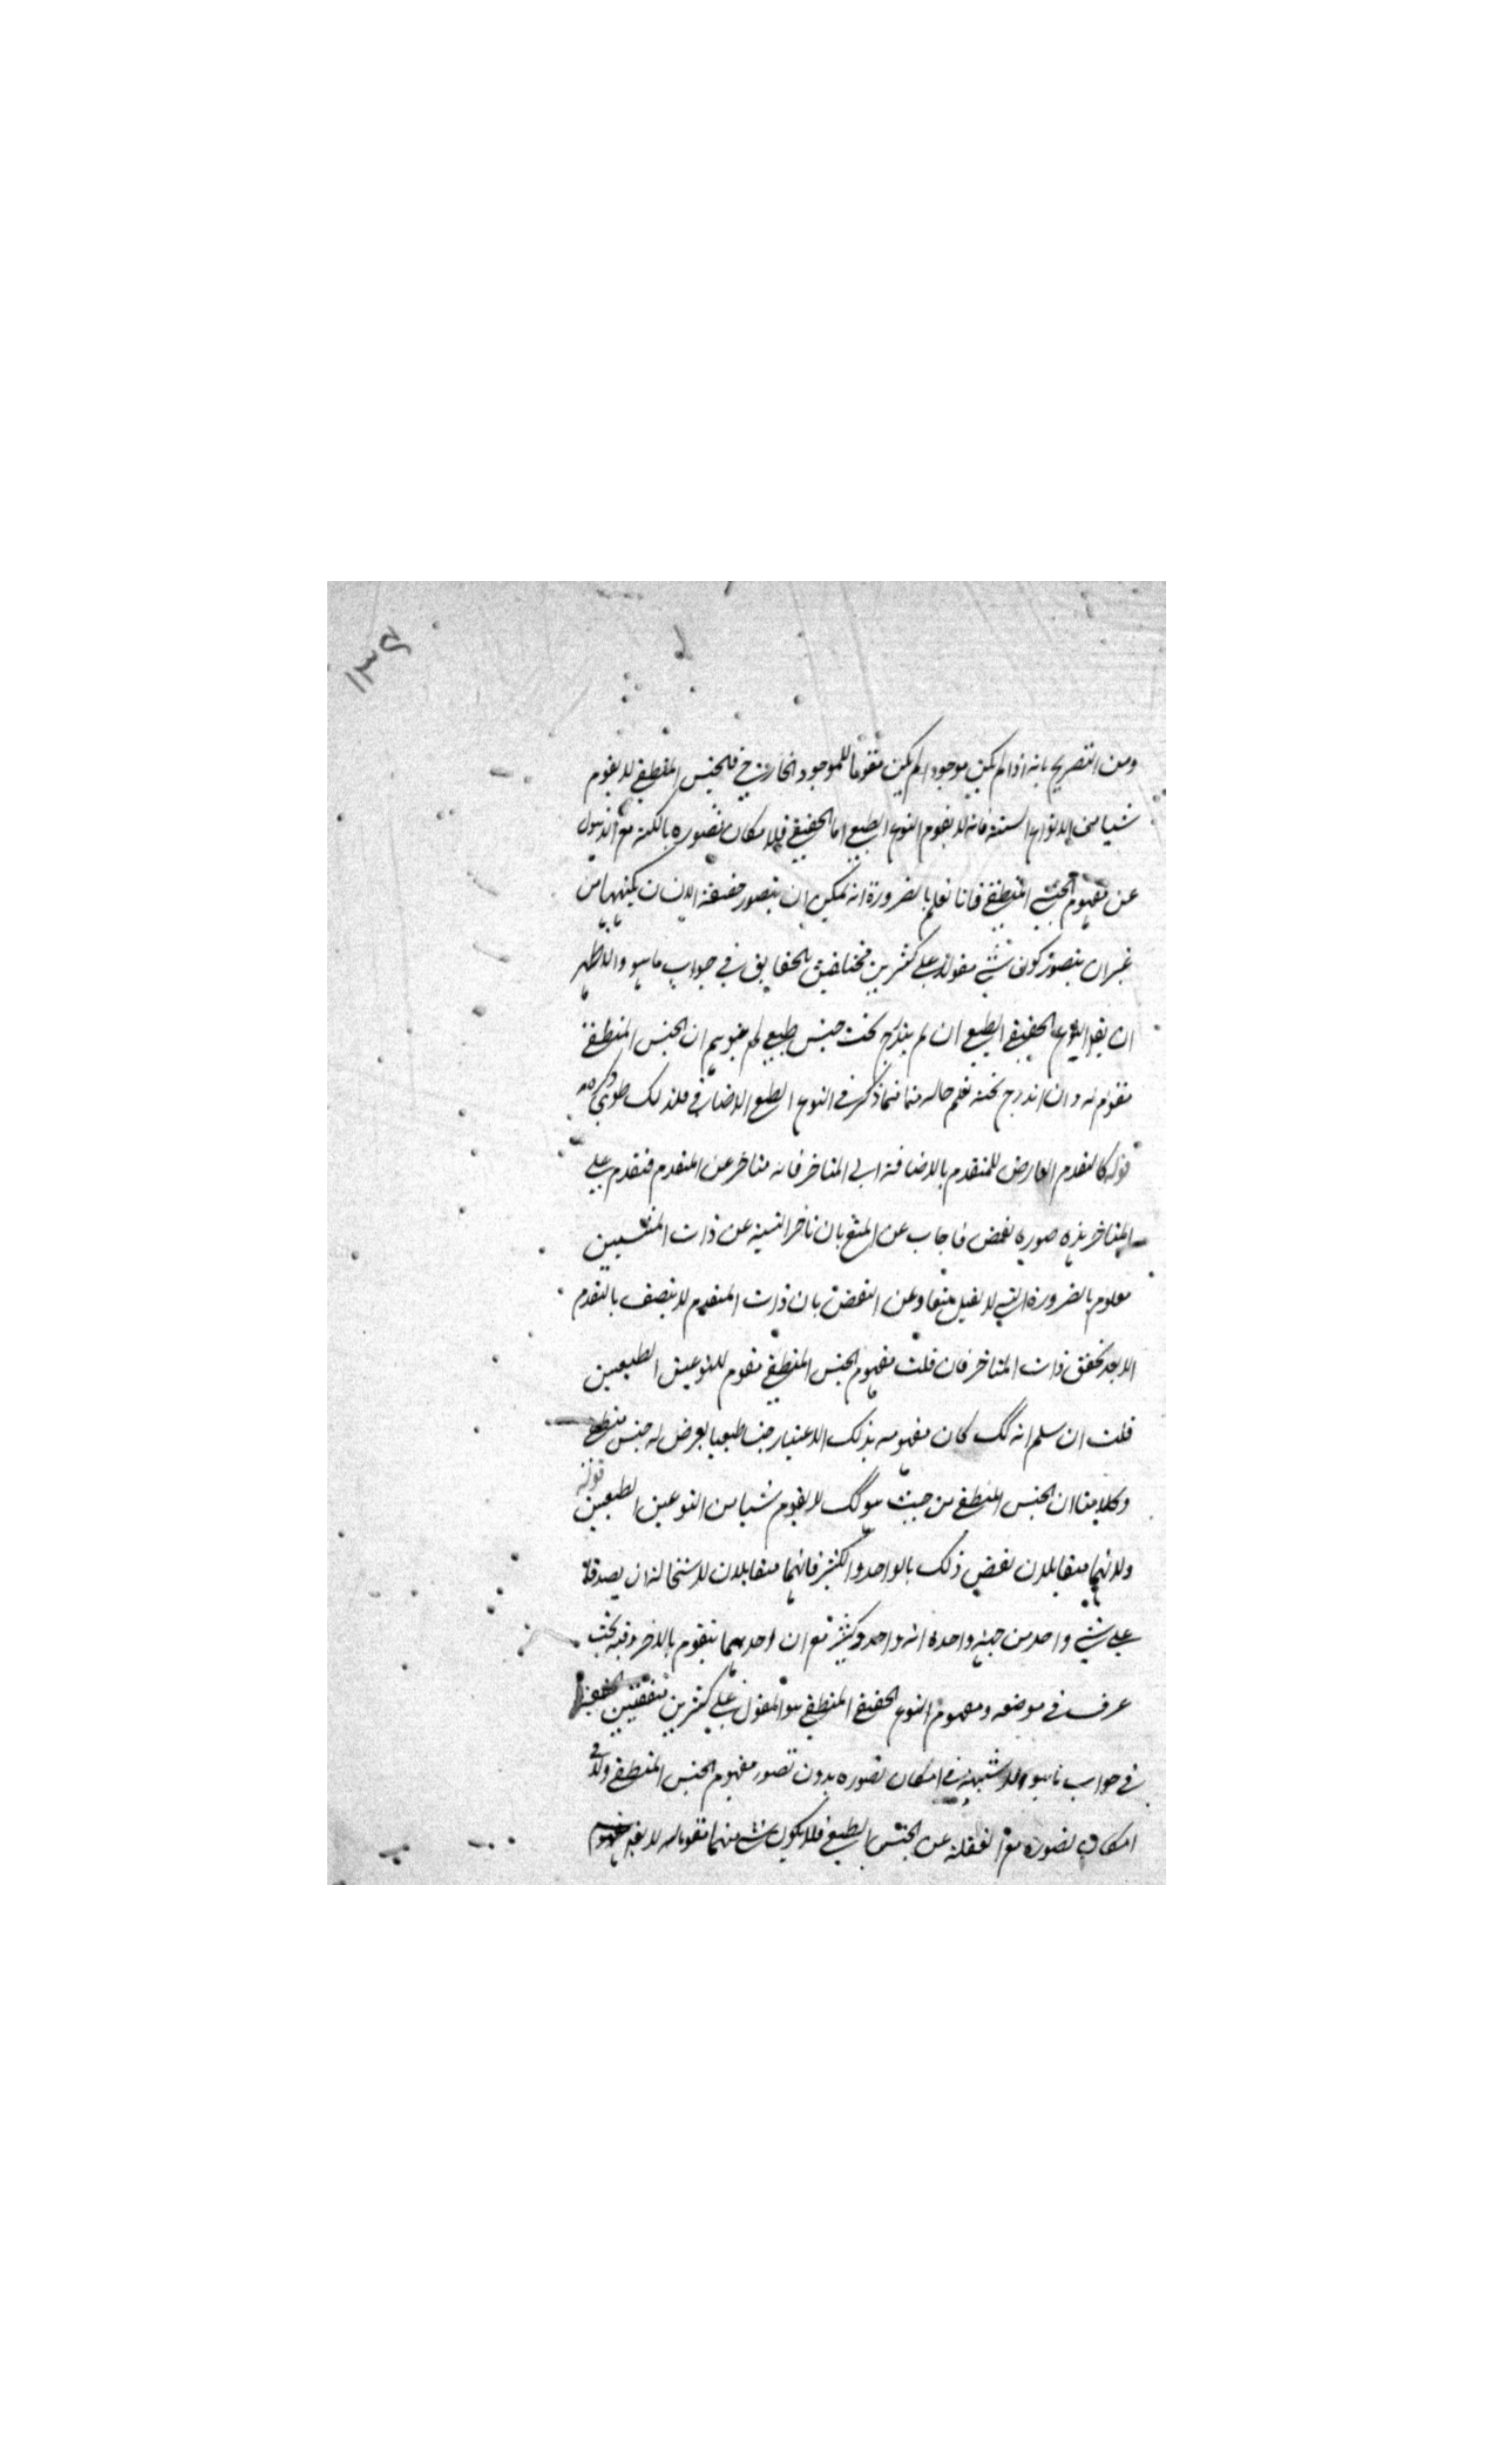 ١٣٤
ومن التصريح بانه اذا لم يكن موجودا لم يكن مقوما للموجود الخارجي فالجنس المنطقي لا يقوم
شيا من الانواع الستة فانه لا يقوم النوع الطبيعي اما الحقيقي فلامكان تصوره بالكنه مع الذهول
عن مفهوم الجنس المنطقي فانا نعلم بالضرورة انه يمكن ان يتصور حقيقة الانسان بكنهها من
غير ان يتصور كون شئ مقولا على كثيرين مختلفين بالحقايق في جواب ما هو والاظهر
ان يقال النوع الحقيقي الطبيعي ان لم يندرج تحت جنس طبيعي لم يتوهم ان الجنس المنطقي
مقوم له وان اندرج تحته نعلم حاله مما ذكر في النوع الطبيعي الاضافي فلذلك طوي ذكره
قوله كالتقدم العارض للمتقدم بالاضافة الى المتاخر فانه متاخر عن المتقدم فتقدم على
المتاخر هذه صورة نقض فاجاب عن المنع بان تاخر النسبة عن ذات المنتسبين
معلوم بالضرورة التي لا تقبل منعا وعن النقض بان ذات المتقدم لا يتصف بالتقدم
الا بعد تحقق ذات المتاخر فان قلت مفهوم الجنس المنطقي مقوم للنوعين الطبيعيين
قلت ان سلم انه كك كان مفهومه بذلك الاعتبار جنسا طبيعيا يعرض له جنس منطقي
وكلامنا ان الجنس المنطقي من حيث هو كك لا يقوم شيا من النوعين الطبيعيين قوله
ولانهما متقابلان نقض ذلك بالواحد والكثير فانهما متقابلان لاستحالة ان يصدقا
على شئ واحد من جهة واحدة انه واحد وكثير مع ان احدهما يتقوم بالاخر وفيه بحث
عرف في موضعه ومفهوم النوع الحقيقي المنطقي هو المقول على كثيرين متفقين الحقيقة
في جواب ما هو ولا شبهة في امكان تصوره بدون تصور مفهوم الجنس المنطقي ولا في
امكان تصوره مع الغفلة عن الجنس الطبيعي فلا يكون شئ منهما مقوما له لا يقال مفهوم